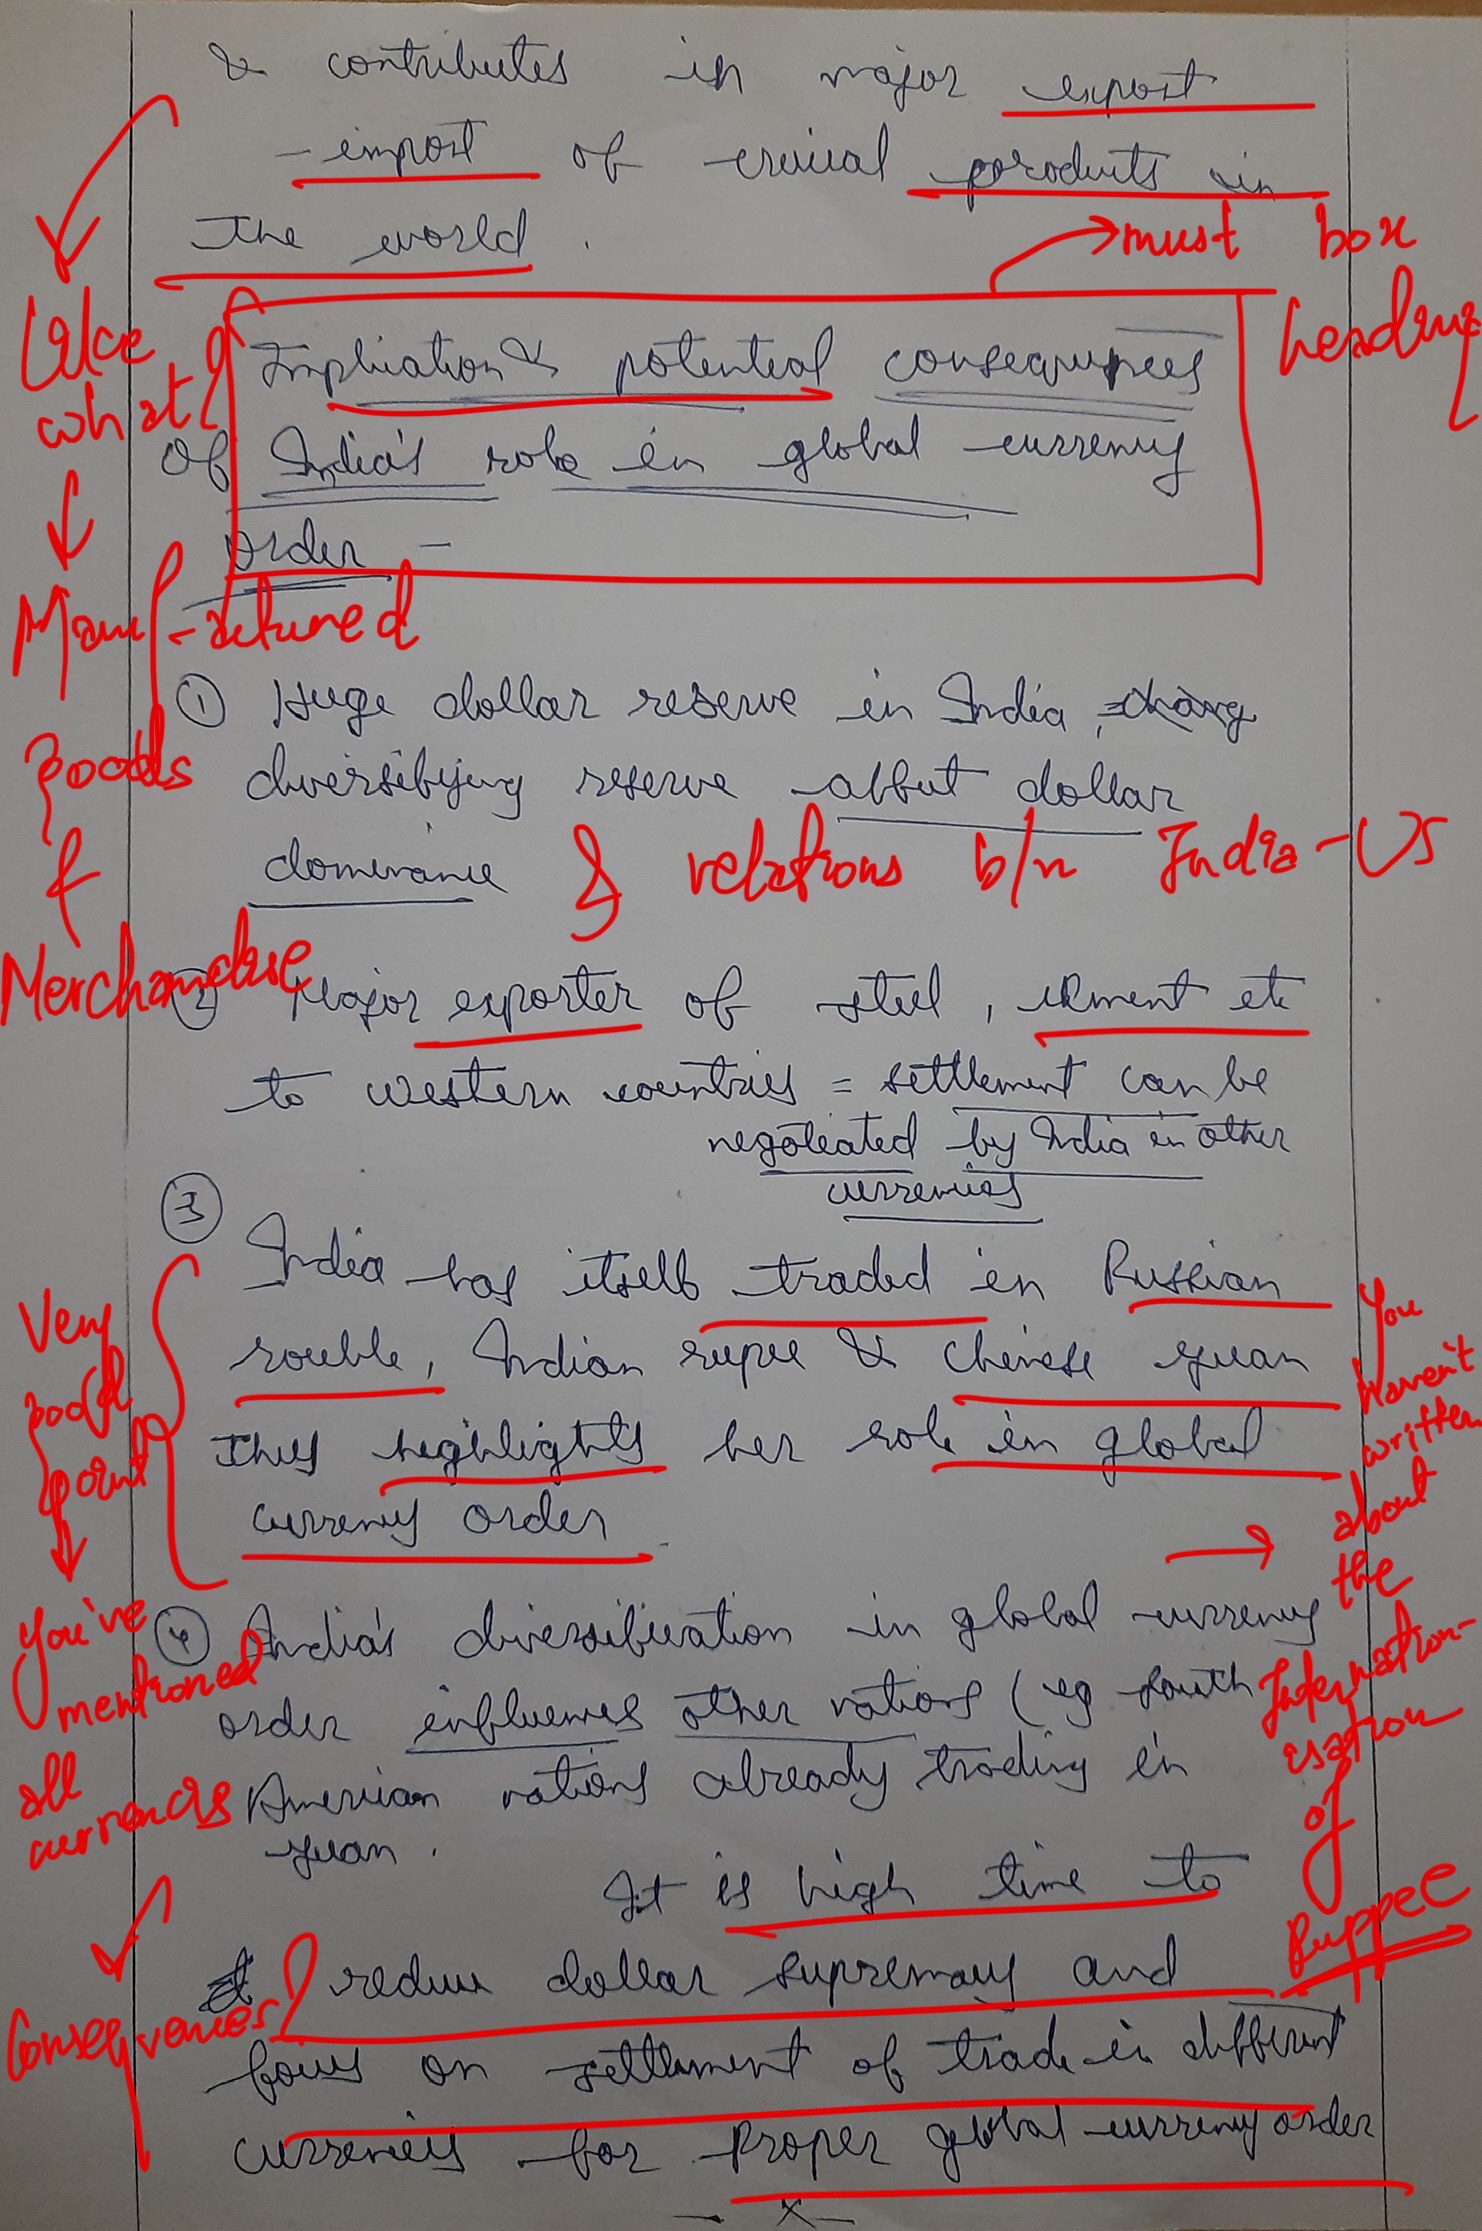 & contributes in major export
- import of crucial products in
the world.
→ must box
heading
Like
what?
↓
Manf-actured
goods
&
Merchandise
Implication & potential consequences
of India's role in global currency
order -
① Huge dollar reserve in India,
diversifying reserve affect dollar
dominance
& relations b/n India-US
② Major exporter of steel, cement etc
to western countries = settlement can be
negotiated by India in other
currencies
③
India has itself traded in Russian
rouble, Indian rupee & Chinese yuan
thus highlights her role in global
currency order.
Very
good
point
↓
You've
mentioned
all
currencies
→ You
haven't
written
about
the
Internation-
isation
of
Ruppee
④ India's diversification in global currency
order influences other nations (eg South
American nations already trading in
yuan.
It is high time to
reduce dollar supremacy and
focus on settlement of trade in different
currencies for proper global currency order
Consequences?
- x -